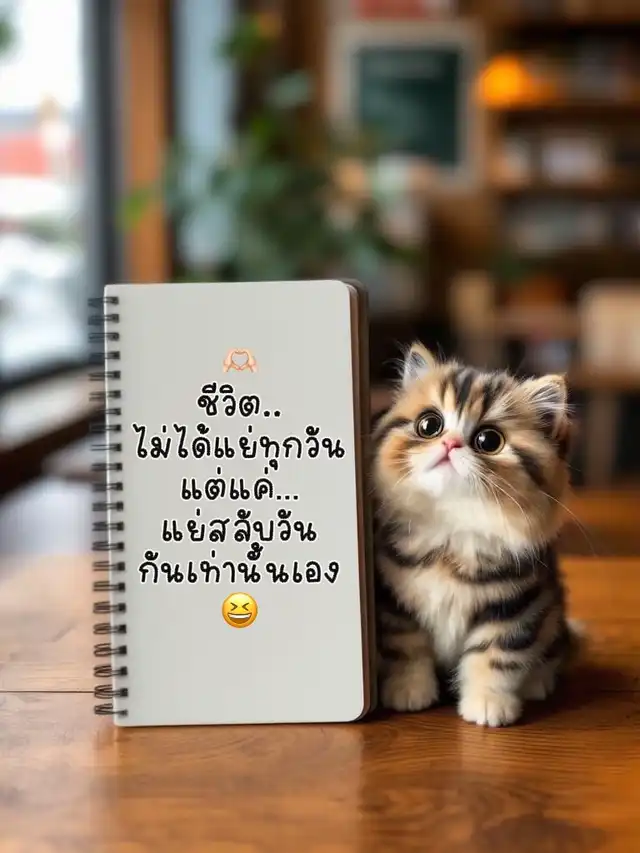 🫶🏻
ชีวิต..
ไม่ได้แย่ทุกวัน
แต่แค่...
แย่สลับวัน
กันเท่านั้นเอง
😆